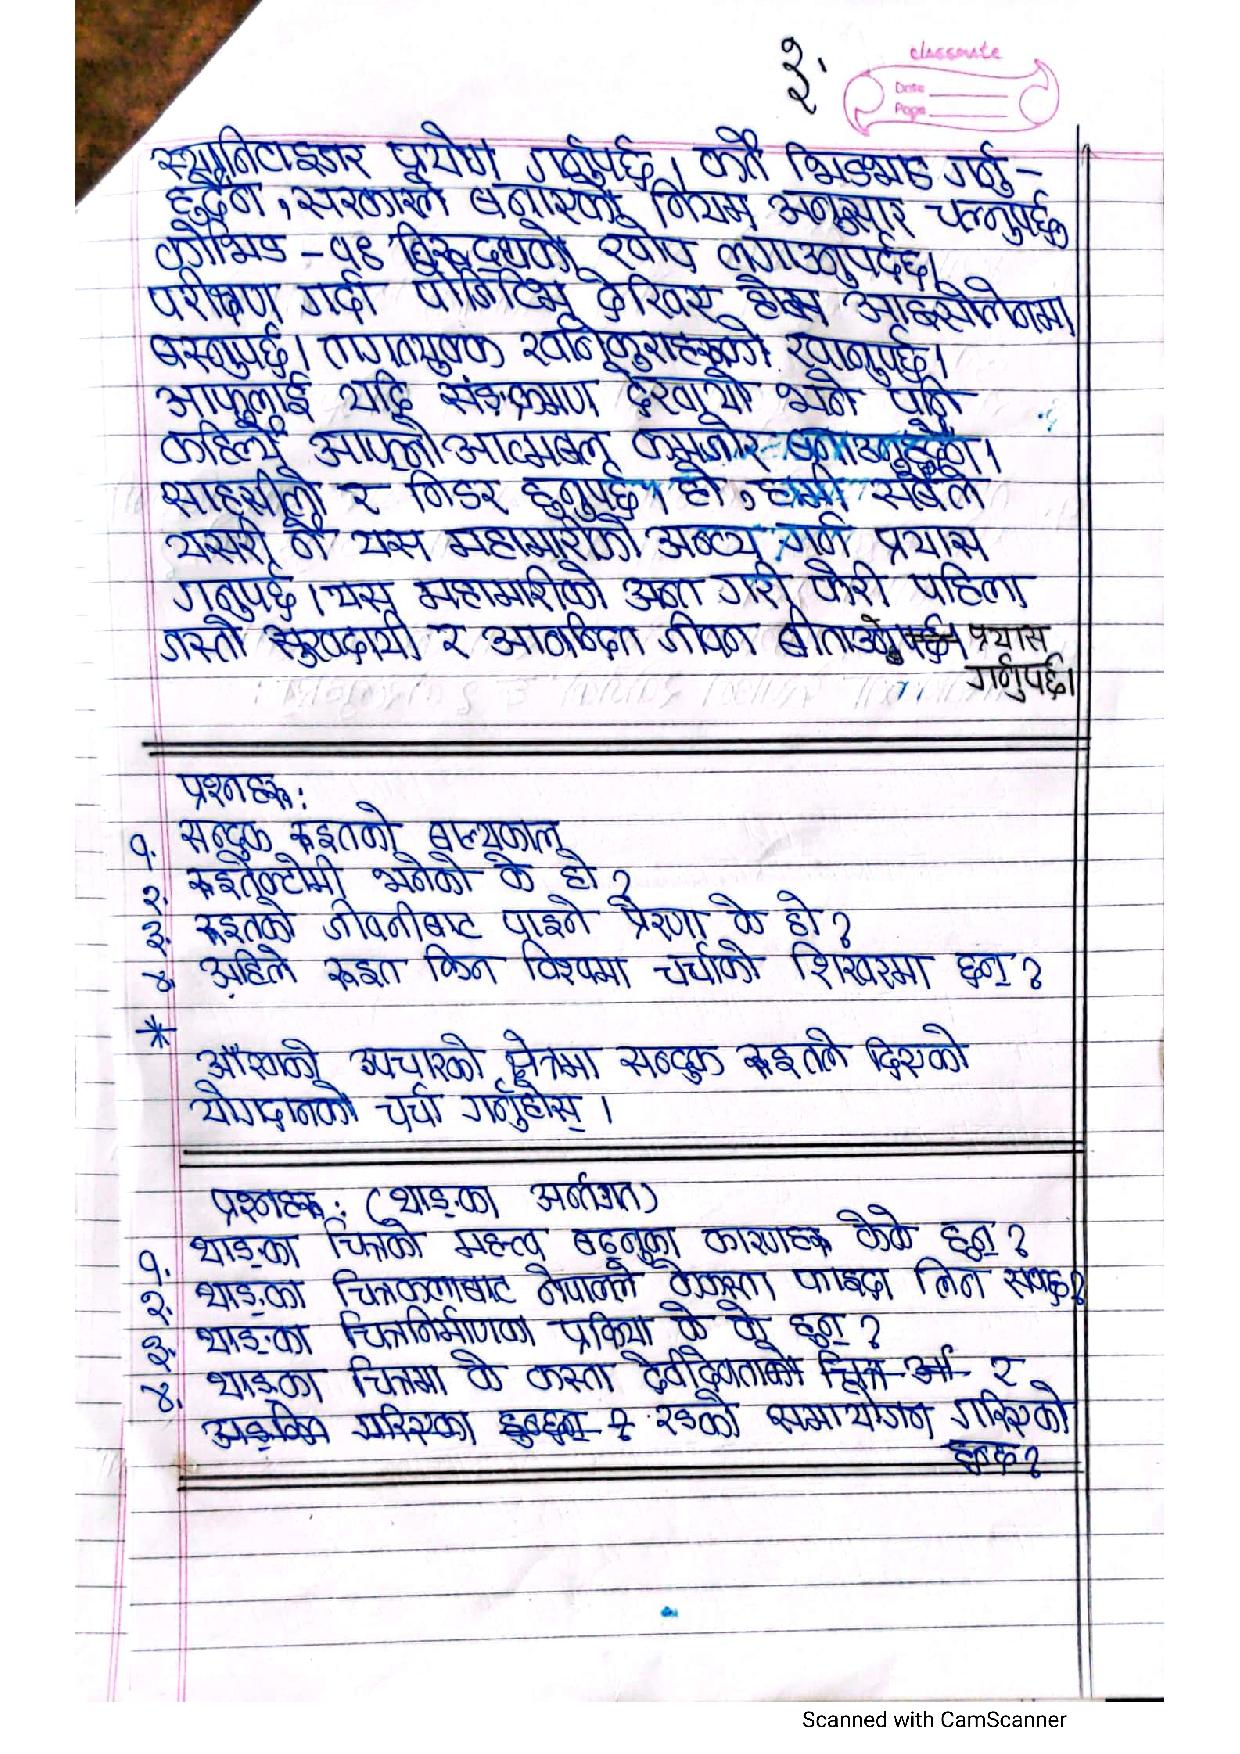 २.
classmate
Date
Page
स्यानिटाइजर प्रयोग गर्नुपर्छ। कतै भिडभाड गर्नु-
हुदैन, सरकारले बनाएको नियम अनुसार चल्नुपर्छ
कोभिड - १९ बिरूद्धको खोप लगाउनुपर्दछ।
परीक्षण गर्दा पोजिटिभ देखिए होम आइसोलेनमा
बस्नुपर्छ। तागतयुक्त खानेकुराहरूको खानुपर्छ।
आफुलाई यदि संङक्रमण देखायो भने पनि
कहिल्यै आफ्नो आत्मबल कमजोर बनाउनुहुदैन।
साहसीलो र निडर हुनुपर्छ। हो, हामी सबैले
यसरी नै यस महामारीको अन्त्य गर्न प्रयास
गनुपर्छ।यस महामारीको अन्त गरी फेरी पहिला
जस्तो सुखदायी र आनन्दित जीवन बीताउने प्रयास
गर्नुपर्छ।
प्रश्नहरू:
१. सन्दुक रूइतको बाल्यकाल
२. रूइतेक्टोमी भनेको के हो?
३. रूइतको जीवनीबाट पाइने प्रेरणा के हो?
४. अहिले रूइत किन विश्वमा चर्चाको शिखरमा छन्?
*
आँखाको उपचारको क्षेत्रमा सन्दुक रूइतले दिएको
योगदानको चर्चा गर्नुहोस्।
प्रश्नहरू: (थाङ्का अर्न्तगत)
१. थाङ्का चित्रको महत्व बढ्नुका कारणहरू केके हुन्?
२. थाङ्का चित्रकलाबाट नेपालले केकस्ता फाइदा लिन सक्छ?
३. थाङ्का चित्रनिर्माणका प्रक्रिया के के हुन्?
४. थाङ्का चित्रमा के कस्ता देवीदेवताको चित्र र
रङको समायोजन गरिएको
हुन्छ?
Scanned with CamScanner